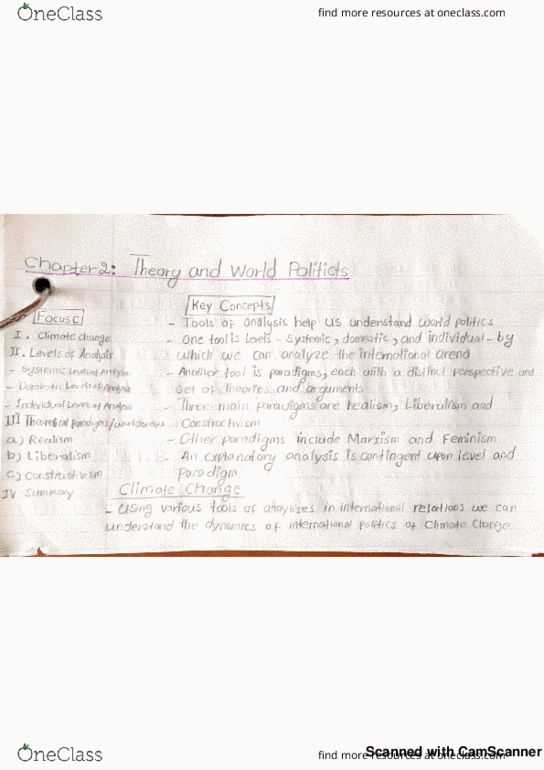 OneClass
find more resources at oneclass.com
Chapter 2: Theory and World Politicts
Focus
Key Concepts
I. Climate change
II. Levels of Analysis
- Systemic Level of Analysis
- Domestic Level of Analysis
- Individual Levels of Analysis
III Theoretical paradigms/worldviews
a) Realism
b) Liberalism
c) Constructivism
IV Summary
- Tools of analysis help us understand world politics
- One tool is levels - systemic, domestic, and individual - by
which we can analyze the international arena
- Another tool is paradigms, each with a distinct perspective and
set of theories and arguments
- Three main paradigms are realism, Liberalism and
Constructivism
- Other paradigms include Marxism and Feminism
- An explanatory analysis is contingent upon level and
paradigm
Climate Change
- Using various tools of analyises in international relations we can
understand the dynamics of international politics of Climate Change
OneClass
find more resources at oneclass.com
Scanned with CamScanner